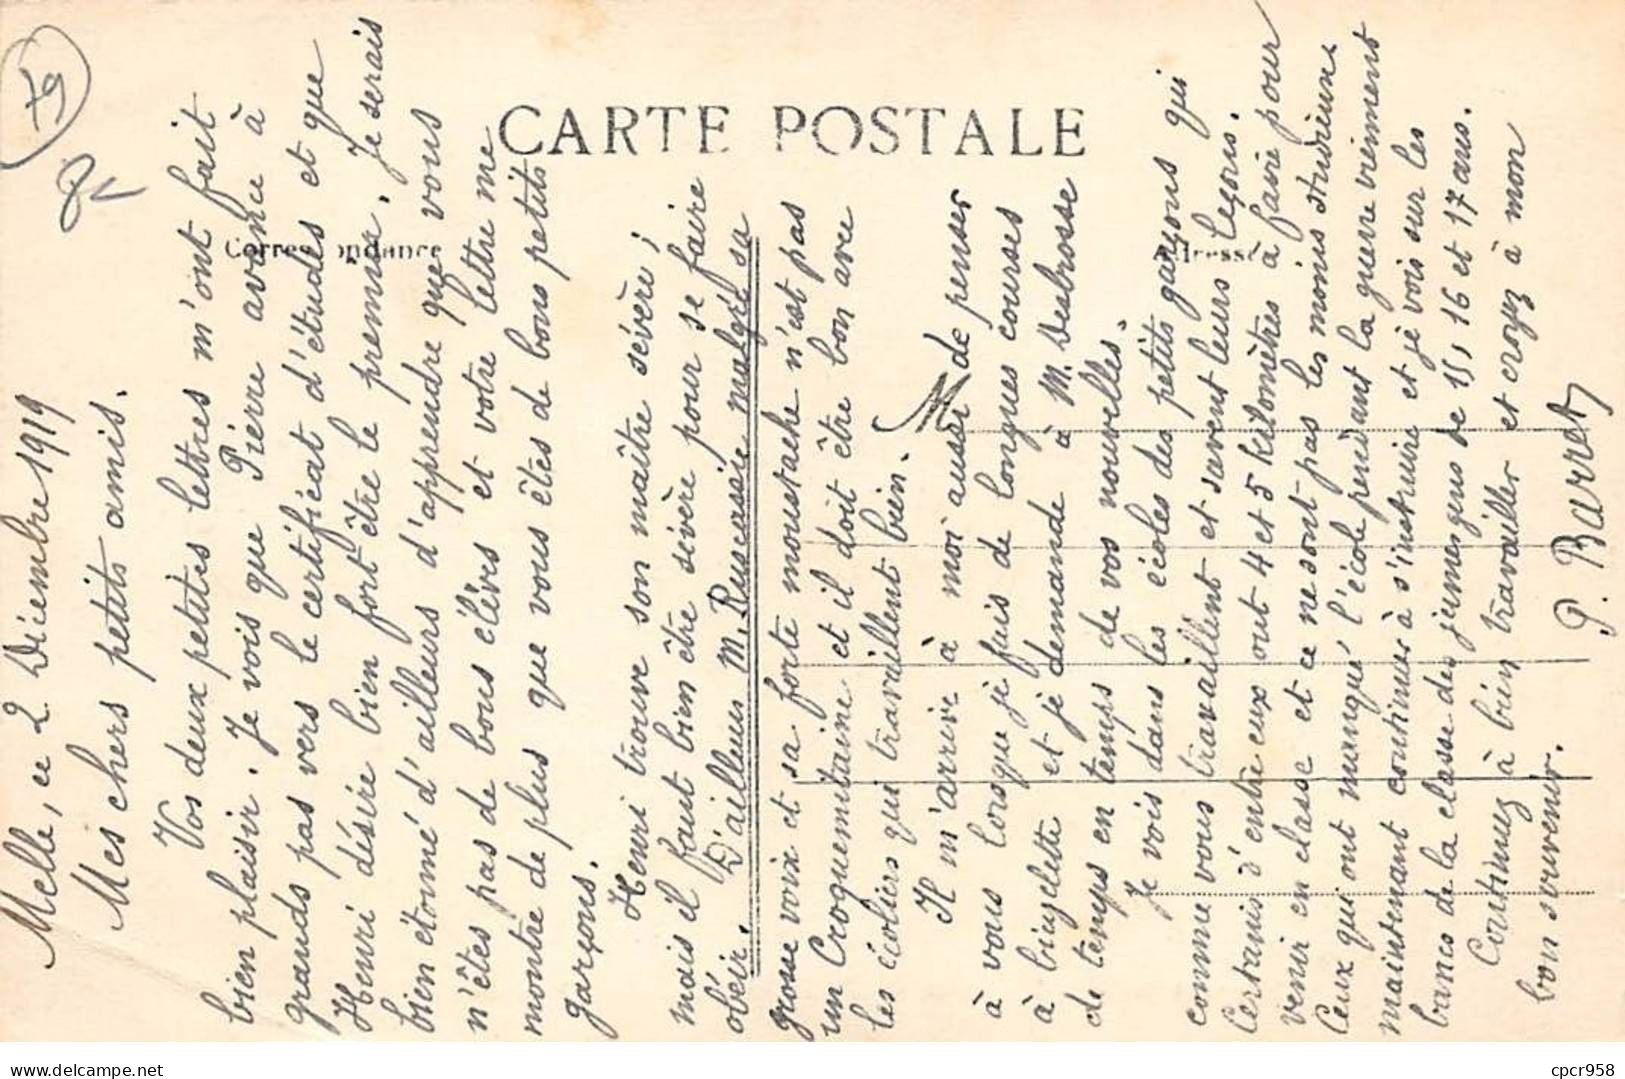 79
CARTE POSTALE
Correspondance
Adresse
Melle, ce 2 Décembre 1919
Mes chers petits amis.
Vos deux petites lettres m'ont fait
bien plaisir. Je vois que Pierre avance à
grands pas vers le certificat d'études et que
Henri désire bien fort être le premier. Je serais
bien étonné d'ailleurs d'apprendre que vous
n'êtes pas de bons élèves et votre lettre me
montre de plus que vous êtes de bons petits
garçons.
Henri trouve son maître sévère ;
mais il faut bien être sévère pour se faire
obéir. D'ailleurs M. Ruscassie malgré sa
grosse voix et sa forte moustache n'est pas
un Croquemitaine et il doit être bon avec
les écoliers qui travaillent bien.
Il m'arrive à moi aussi de penser
à vous lorsque je fais de longues courses
à bicyclette et je demande à M. Desbrosse
de temps en temps de vos nouvelles.
Je vois dans les écoles des petits garçons qui
comme vous travaillent et savent leurs leçons.
Certains d'entre eux ont 4 et 5 kilomètres à faire pour
venir en classe et ce ne sont pas les moins studieux
Ceux qui ont manqué l'école pendant la guerre viennent
maintenant continuer à s'instruire et je vois sur les
bancs de la classe des jeunes gens de 15, 16 et 17 ans.
Continuez à bien travailler et croyez à mon
bon souvenir.
P. Barret
M
delcampe.net
cpcr958